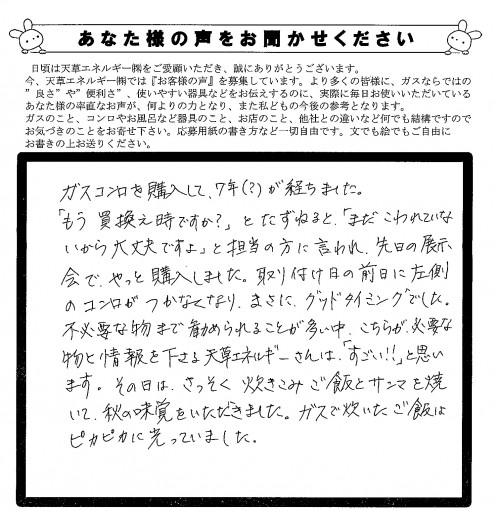 あなた様の声をお聞かせください
日頃は天草エネルギー㈱をご愛顧いただき、誠にありがとうございます。
今、天草エネルギー㈱では『お客様の声』を募集しています。より多くの皆様に、ガスならではの
”良さ”や”便利さ”、使いやすい器具などをお伝えするのに、実際に毎日お使いいただいている
あなた様の率直なお声が、何よりの力となり、また私どもの今後の参考となります。
ガスのこと、コンロやお風呂など器具のこと、お店のこと、他社との違いなど何でも結構ですので
お気づきのことをお寄せ下さい。応募用紙の書き方など一切自由です。文でも絵でもご自由に
お書きの上お送りください。
ガスコンロを購入して、7年(?)が経ちました。
「もう買換え時ですか?」とたずねると、「まだこわれていな
いから大丈夫ですよ」と担当の方に言われ、先日の展示
会で、やっと購入しました。取り付け日の前日に左側
のコンロがつかなくなり、まさに、グッドタイミングでした。
不必要な物まで勧められることが多い中、こちらが必要な
物と情報を下さる天草エネルギーさんは、「すごい!!」と思い
ます。その日は、さっそく炊きこみご飯とサンマを焼
いて、秋の味覚をいただきました。ガスで炊いたご飯は
ピカピカに光っていました。